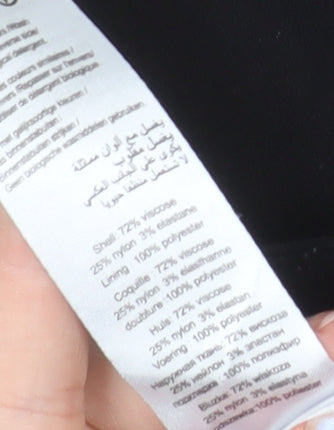 couleurs similaires /
gelijksoortige kleuren /
binnenstebuiten /
Binnenstebuiten strijken /
Geen biologische wasmiddelen gebruiken
يغسل مع ألوان مماثلة
يغسل مقلوب
يكوى على الجانب العكسي
لا تستعمل منظفا حيويا
Shell: 72% viscose
25% nylon 3% elastane
Lining 100% polyester
Coquille: 72% viscose
25% nylon 3% elasthanne
doublure 100% polyester
Huls: 72% viscose
25% nylon 3% elastan
Voering 100% polyester
Наружная ткань: 72% вискоза
25% нейлон 3% эластан
подкладка 100% полиэфир
Bluzka: 72% wiskoza
25% nylon 3% elastyna
100% polyester